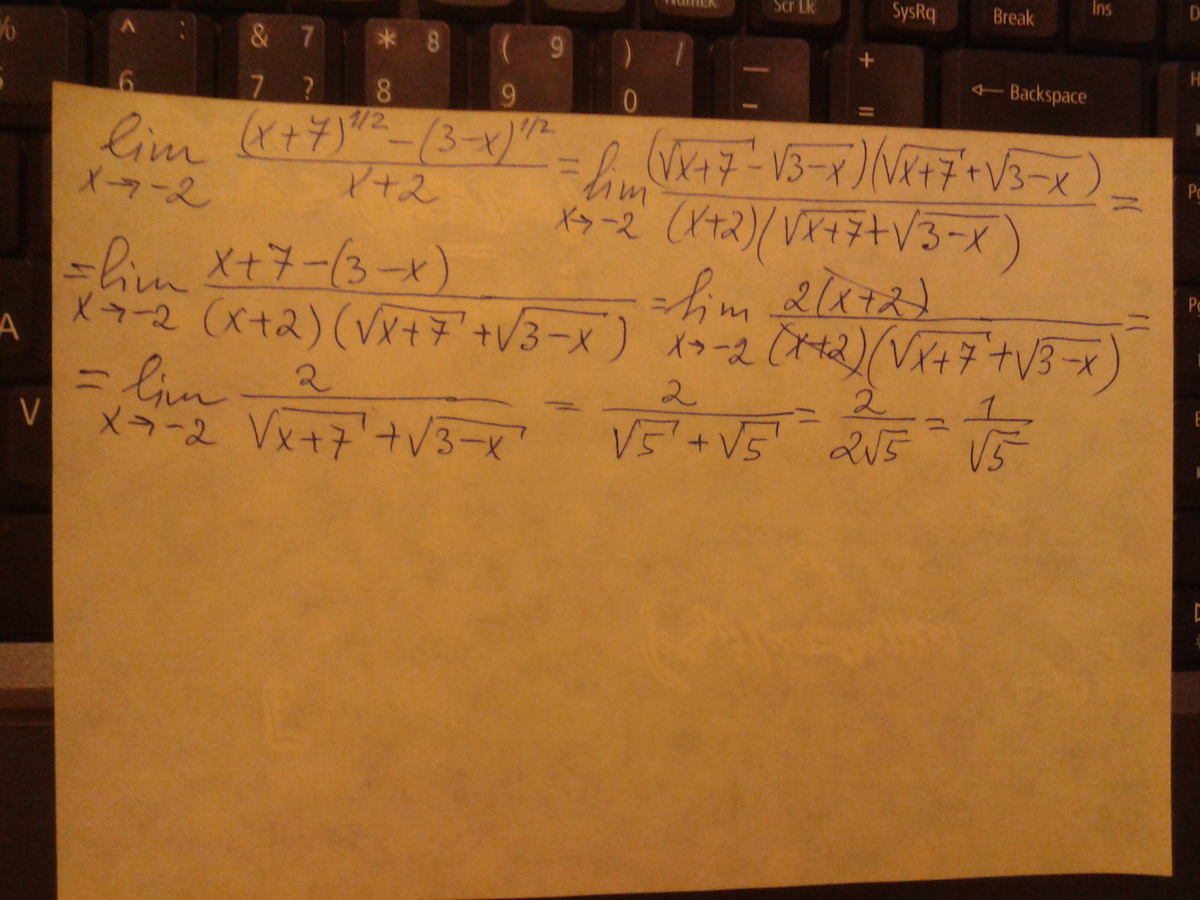 NumLk Scr Lk SysRq Break Ins
% ^ : & 7 * 8 ( 9 ) / — +
6 7 ? 8 9 0 - = ← Backspace
lim x→-2 ((x+7)^1/2 - (3-x)^1/2)/(x+2) = lim x→-2 ((√x+7 - √3-x)(√x+7 + √3-x))/((x+2)(√x+7 + √3-x)) =
= lim x→-2 (x+7-(3-x))/((x+2)(√x+7 + √3-x)) = lim x→-2 (2(x+2))/((x+2)(√x+7 + √3-x)) =
= lim x→-2 2/(√x+7 + √3-x) = 2/(√5 + √5) = 2/(2√5) = 1/√5
A
V